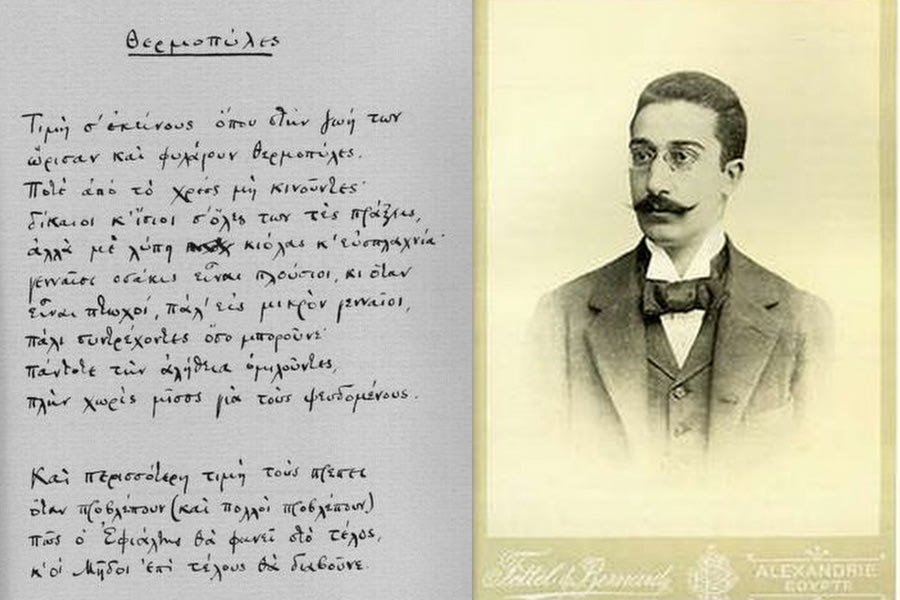 Θερμοπύλες
Τιμὴ σ' ἐκείνους ὅπου στὴν ζωή των
ὥρισαν καὶ φυλάγουν Θερμοπύλες.
Ποτὲ ἀπὸ τὸ χρέος μὴ κινοῦντες·
δίκαιοι κ' ἴσιοι σ' ὅλες των τὲς πράξεις,
ἀλλὰ μὲ λύπη κιόλας κ' εὐσπλαχνία·
γενναῖοι ὁσάκις εἶναι πλούσιοι, κι ὅταν
εἶναι πτωχοί, πάλ' εἰς μικρὸν γενναῖοι,
πάλι συντρέχοντες ὅσο μποροῦνε·
πάντοτε τὴν ἀλήθεια ὁμιλοῦντες,
πλὴν χωρὶς μῖσος γιὰ τοὺς ψευδομένους.
Καὶ περισσότερη τιμὴ τοὺς πρέπει
ὅταν προβλέπουν (καὶ πολλοὶ προβλέπουν)
πῶς ὁ Ἐφιάλτης θὰ φανεῖ στὸ τέλος,
κ' οἱ Μῆδοι ἐπὶ τέλους θὰ διαβοῦνε.
Fettel & Bernard
ALEXANDRIE
EGYPTE